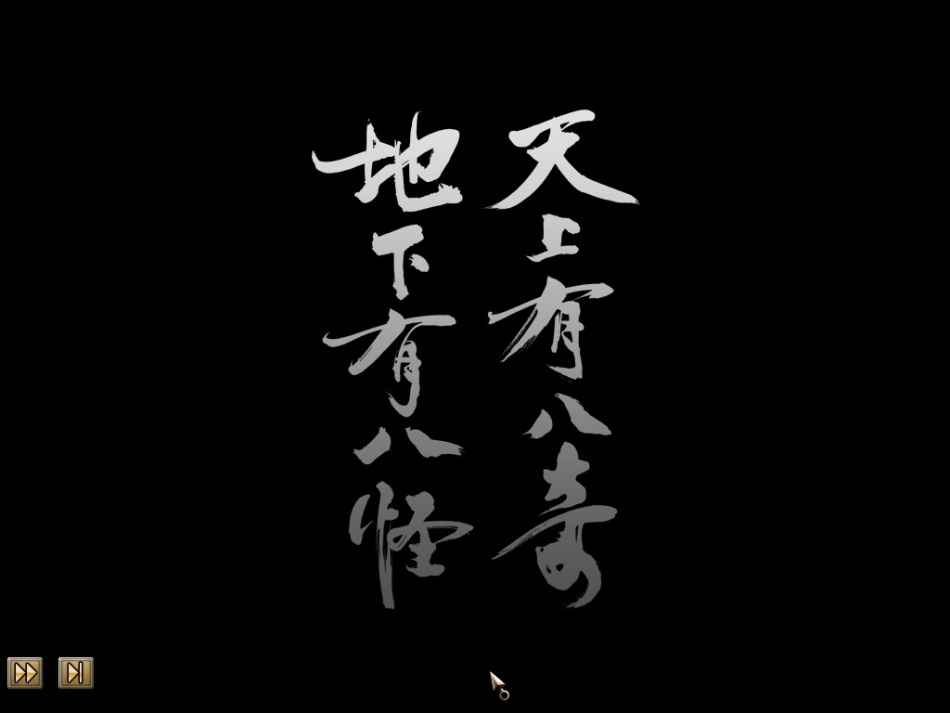 天上有八奇
地下有八怪